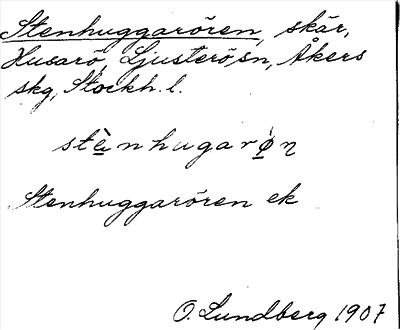 Stenhuggarören, skär,
Husarö, Ljusterö sn, Åkers
skg, Stockh. l.
stènhugarø̀n
Stenhuggarören ek
O. Lundberg 1907